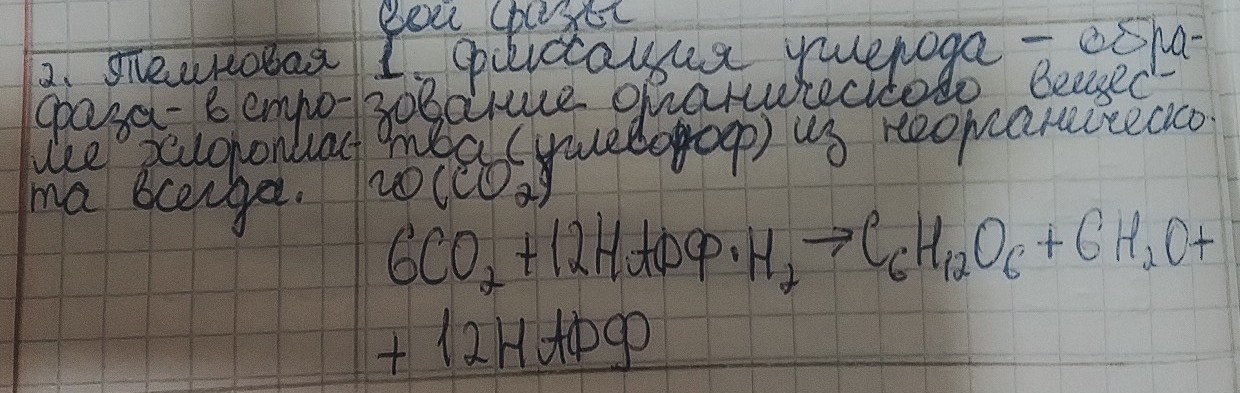 вой фазы
2. Темновая
фаза - в стро-
ме хлороплас-
та всегда.
1. фиксация углерода - обра-
зование органического вещес-
тва (углеводоф) из неорганическо-
го (CO2)
6CO2 + 12НАФФ·H2 → C6H12O6 + 6H2O +
+ 12НАФФ